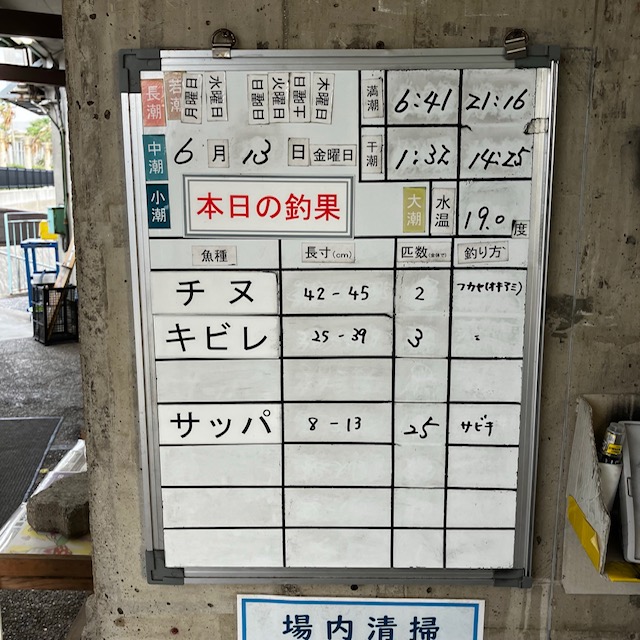 長潮 若潮 日曜日 水曜日 日曜日 火曜日 木曜日 満潮 6:41 21:16
中潮 6月13日 金曜日 干潮 1:32 14:25
小潮 本日の釣果 大潮 水温 19.0度
魚種 長寸(cm) 匹数 釣り方
チヌ 42-45 2 フカセ(オキアミ)
キビレ 25-39 3 〃
サッパ 8-13 25 サビキ
場内清掃